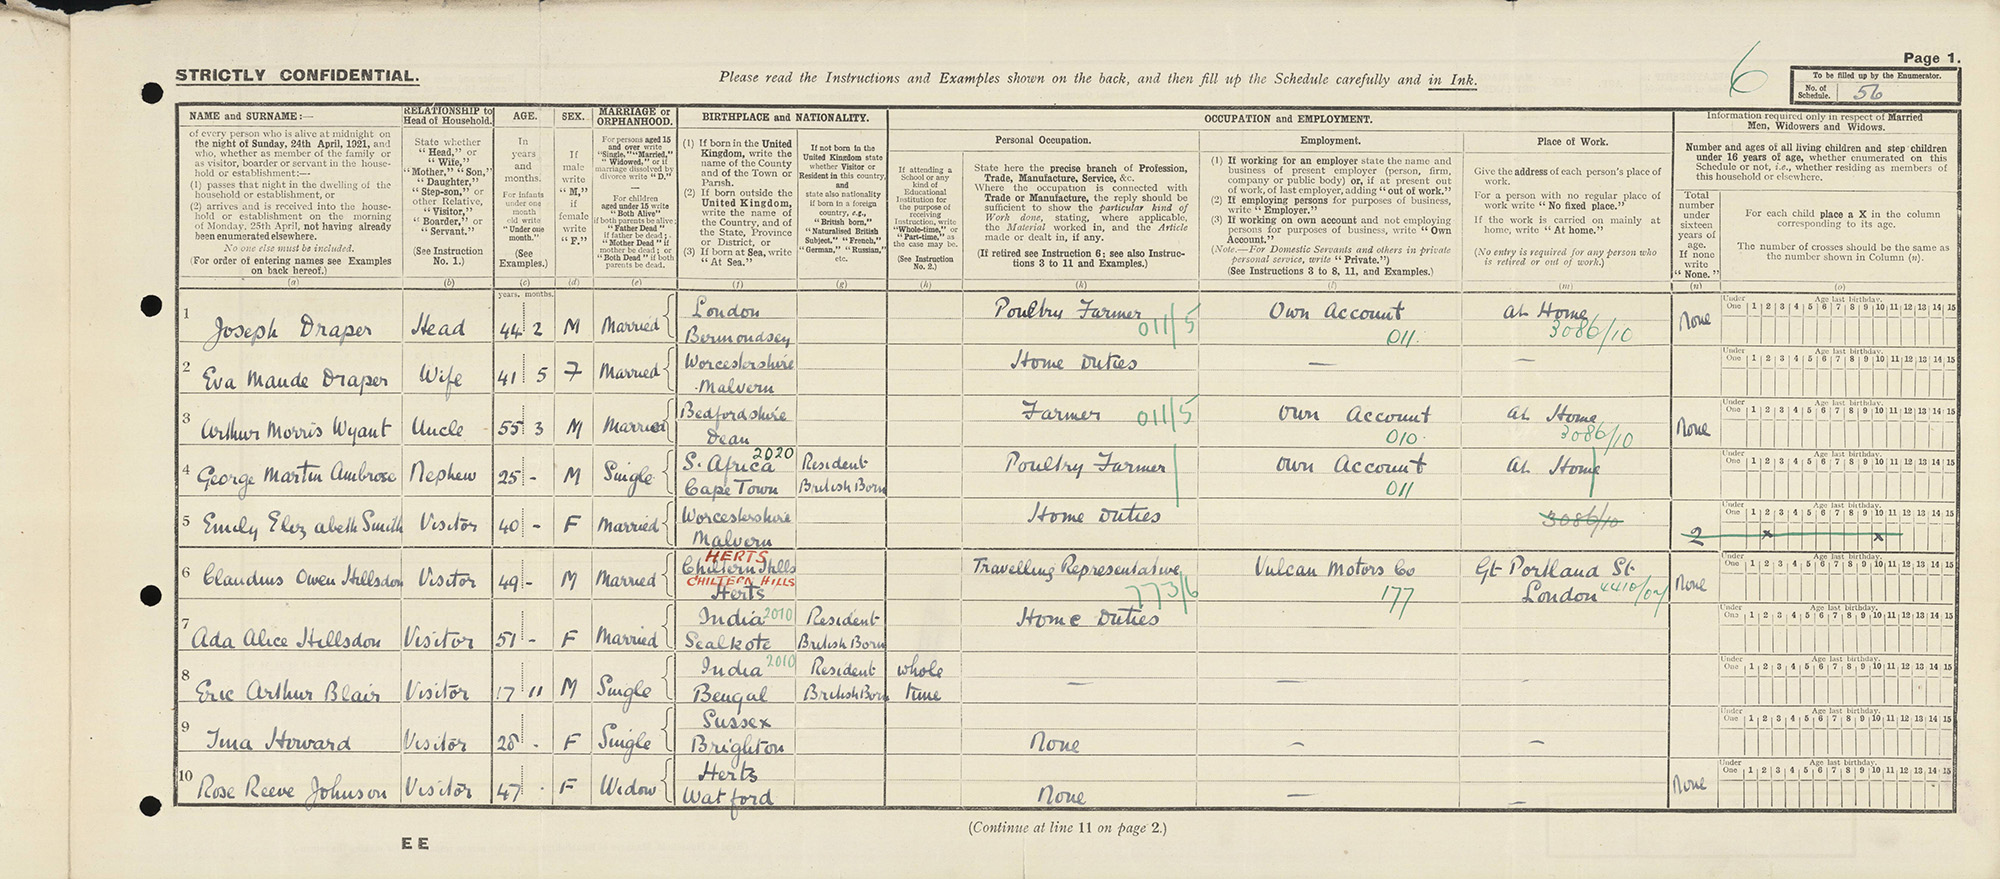 Page 1.
STRICTLY CONFIDENTIAL.
Please read the Instructions and Examples shown on the back, and then fill up the Schedule carefully and in Ink.
6
To be filled up by the Enumerator.
No. of Schedule. 56
NAME and SURNAME:—
of every person who is alive at midnight on
the night of Sunday, 24th April, 1921, and
who, whether as member of the family or
as visitor, boarder or servant in the house-
hold or establishment:—
(1) passes that night in the dwelling of the
household or establishment, or
(2) arrives and is received into the house-
hold or establishment on the morning
of Monday, 25th April, not having already
been enumerated elsewhere.
No one else must be included.
(For order of entering names see Examples
on back hereof.)
(a)
RELATIONSHIP to
Head of Household.
State whether
"Head," or
"Wife,"
"Mother," "Son,"
"Daughter,"
"Step-son," or
other Relative,
"Visitor,"
"Boarder," or
"Servant."
(See Instruction
No. 1.)
(b)
AGE.
In
years
and
months.
For infants
under one
month
old write
"Under one
month."
(See
Examples.)
(c)
SEX.
If
male
write
"M,"
if
female
write
"F."
(d)
MARRIAGE or
ORPHANHOOD.
For persons aged 15
and over write
"Single," "Married,"
"Widowed," or if
marriage dissolved by
divorce write "D."
For children
aged under 15 write
"Both Alive"
if both parents be alive;
"Father Dead"
if father be dead;
"Mother Dead" if
mother be dead; or
"Both Dead" if both
parents be dead.
(e)
BIRTHPLACE and NATIONALITY.
(1) If born in the United
Kingdom, write the
name of the County
and of the Town or
Parish.
(2) If born outside the
United Kingdom,
write the name of
the Country, and of
the State, Province
or District, or
(3) If born at Sea, write
"At Sea."
(f)
If not born in the
United Kingdom state
whether Visitor or
Resident in this country,
and
state also nationality
if born in a foreign
country, e.g.,
"British born,"
"Naturalised British
Subject," "French,"
"German," "Russian,"
etc.
(g)
OCCUPATION and EMPLOYMENT.
If attending a
School or any
kind of
Educational
Institution for
the purpose of
receiving
Instruction, write
"Whole-time," or
"Part-time," as
the case may be.
(See Instruction
No. 2.)
(h)
Personal Occupation.
State here the precise branch of Profession,
Trade, Manufacture, Service, &c.
Where the occupation is connected with
Trade or Manufacture, the reply should be
sufficient to show the particular kind of
Work done, stating, where applicable,
the Material worked in, and the Article
made or dealt in, if any.
(If retired see Instruction 6; see also Instruc-
tions 3 to 11 and Examples.)
(k)
Employment.
(1) If working for an employer state the name and
business of present employer (person, firm,
company or public body) or, if at present out
of work, of last employer, adding "out of work."
(2) If employing persons for purposes of business,
write "Employer."
(3) If working on own account and not employing
persons for purposes of business, write "Own
Account."
(Note.—For Domestic Servants and others in private
personal service, write "Private.")
(See Instructions 3 to 8, 11, and Examples.)
(l)
Place of Work.
Give the address of each person's place of
work.
For a person with no regular place of
work write "No fixed place."
If the work is carried on mainly at
home, write "At home."
(No entry is required for any person who
is retired or out of work.)
(m)
Information required only in respect of Married
Men, Widowers and Widows.
Number and ages of all living children and step children
under 16 years of age, whether enumerated on this
Schedule or not, i.e., whether residing as members of
this household or elsewhere.
Total
number
under
sixteen
years of
age.
If none
write
"None."
(n)
For each child place a X in the column
corresponding to its age.
The number of crosses should be the same as
the number shown in Column (n).
(o)
years. months.
1 Joseph Draper Head 44 2 M Married London Bermondsey Poultry Farmer 011/5 Own Account 011 at Home 3086/10 None
Under One Age last birthday. 1 2 3 4 5 6 7 8 9 10 11 12 13 14 15
2 Eva Maude Draper Wife 41 5 F Married Worcestershire Malvern Home Duties — —
Under One Age last birthday. 1 2 3 4 5 6 7 8 9 10 11 12 13 14 15
3 Arthur Morris Wyant Uncle 55 3 M Married Bedfordshire Dean Farmer 011/5 Own Account 010 at Home 3086/10 None
Under One Age last birthday. 1 2 3 4 5 6 7 8 9 10 11 12 13 14 15
4 George Martin Ambrose Nephew 25 - M Single S. Africa 2020 Cape Town Resident British Born Poultry Farmer Own Account 011 at Home
Under One Age last birthday. 1 2 3 4 5 6 7 8 9 10 11 12 13 14 15
5 Emily Elizabeth Smith Visitor 40 - F Married Worcestershire Malvern Home Duties 3086/10 2 x x
Under One Age last birthday. 1 2 3 4 5 6 7 8 9 10 11 12 13 14 15
6 Claudius Owen Hillsdon Visitor 49 - M Married HERTS Chiltern Hills CHILTERN HILLS Herts Travelling Representative 773/6 Vulcan Motors Co 177 Gt Portland St London None
Under One Age last birthday. 1 2 3 4 5 6 7 8 9 10 11 12 13 14 15
7 Ada Alice Hillsdon Visitor 51 - F Married India 2010 Sealkote Resident British Born Home Duties
Under One Age last birthday. 1 2 3 4 5 6 7 8 9 10 11 12 13 14 15
8 Eric Arthur Blair Visitor 17 11 M Single India 2010 Bengal Resident British Born whole time — —
Under One Age last birthday. 1 2 3 4 5 6 7 8 9 10 11 12 13 14 15
9 Ina Howard Visitor 28 - F Single Sussex Brighton None — —
Under One Age last birthday. 1 2 3 4 5 6 7 8 9 10 11 12 13 14 15
10 Rose Reeve Johnson Visitor 47 - F Widow Herts Watford None — — None
Under One Age last birthday. 1 2 3 4 5 6 7 8 9 10 11 12 13 14 15
(Continue at line 11 on page 2.)
E E